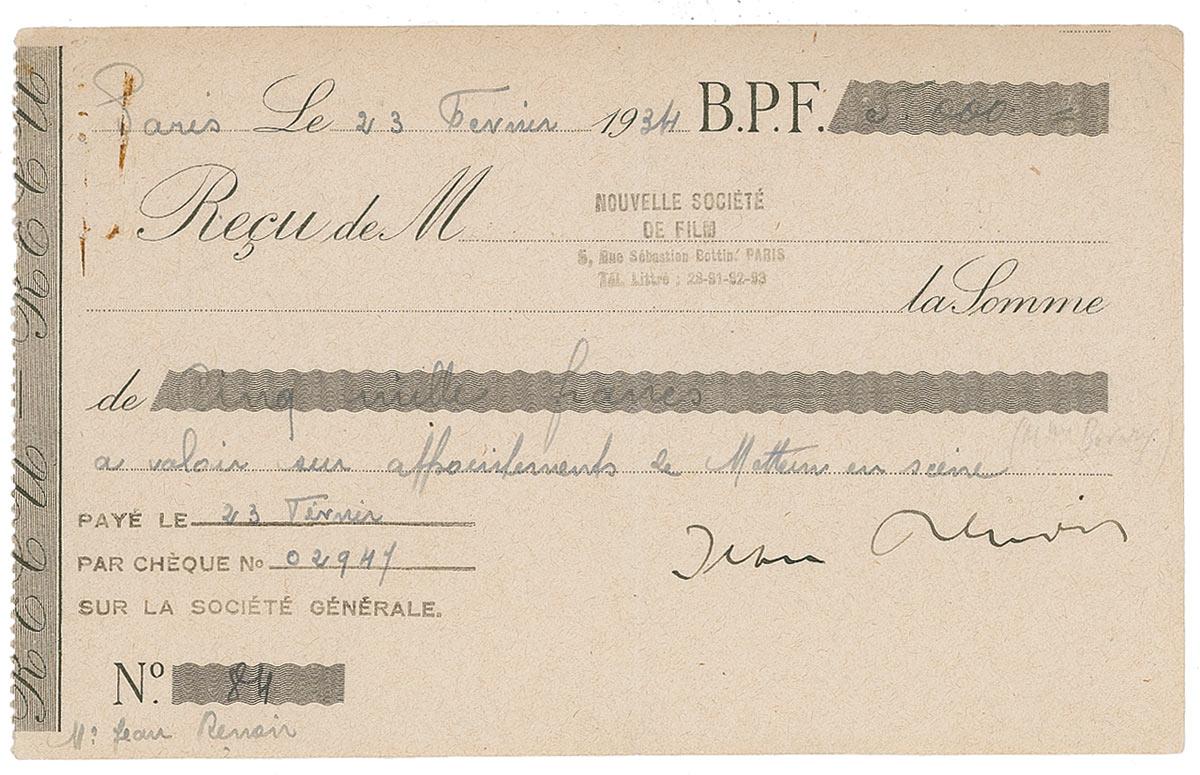 REÇU — REÇU
Paris Le 23 Fevrier 1934 B.P.F. 5.000. =
Reçu de M
NOUVELLE SOCIÉTÉ
DE FILM
5, Rue Sébastien Bottin. PARIS
Tél. Littré : 28-91-92-93
la Somme
de Cinq mille francs
a valoir sur appointements de Metteur en scène
PAYÉ LE 23 Février
PAR CHÈQUE No 02947
SUR LA SOCIÉTÉ GÉNÉRALE.
Jean Renoir
No. 84
Mr Jean Renoir